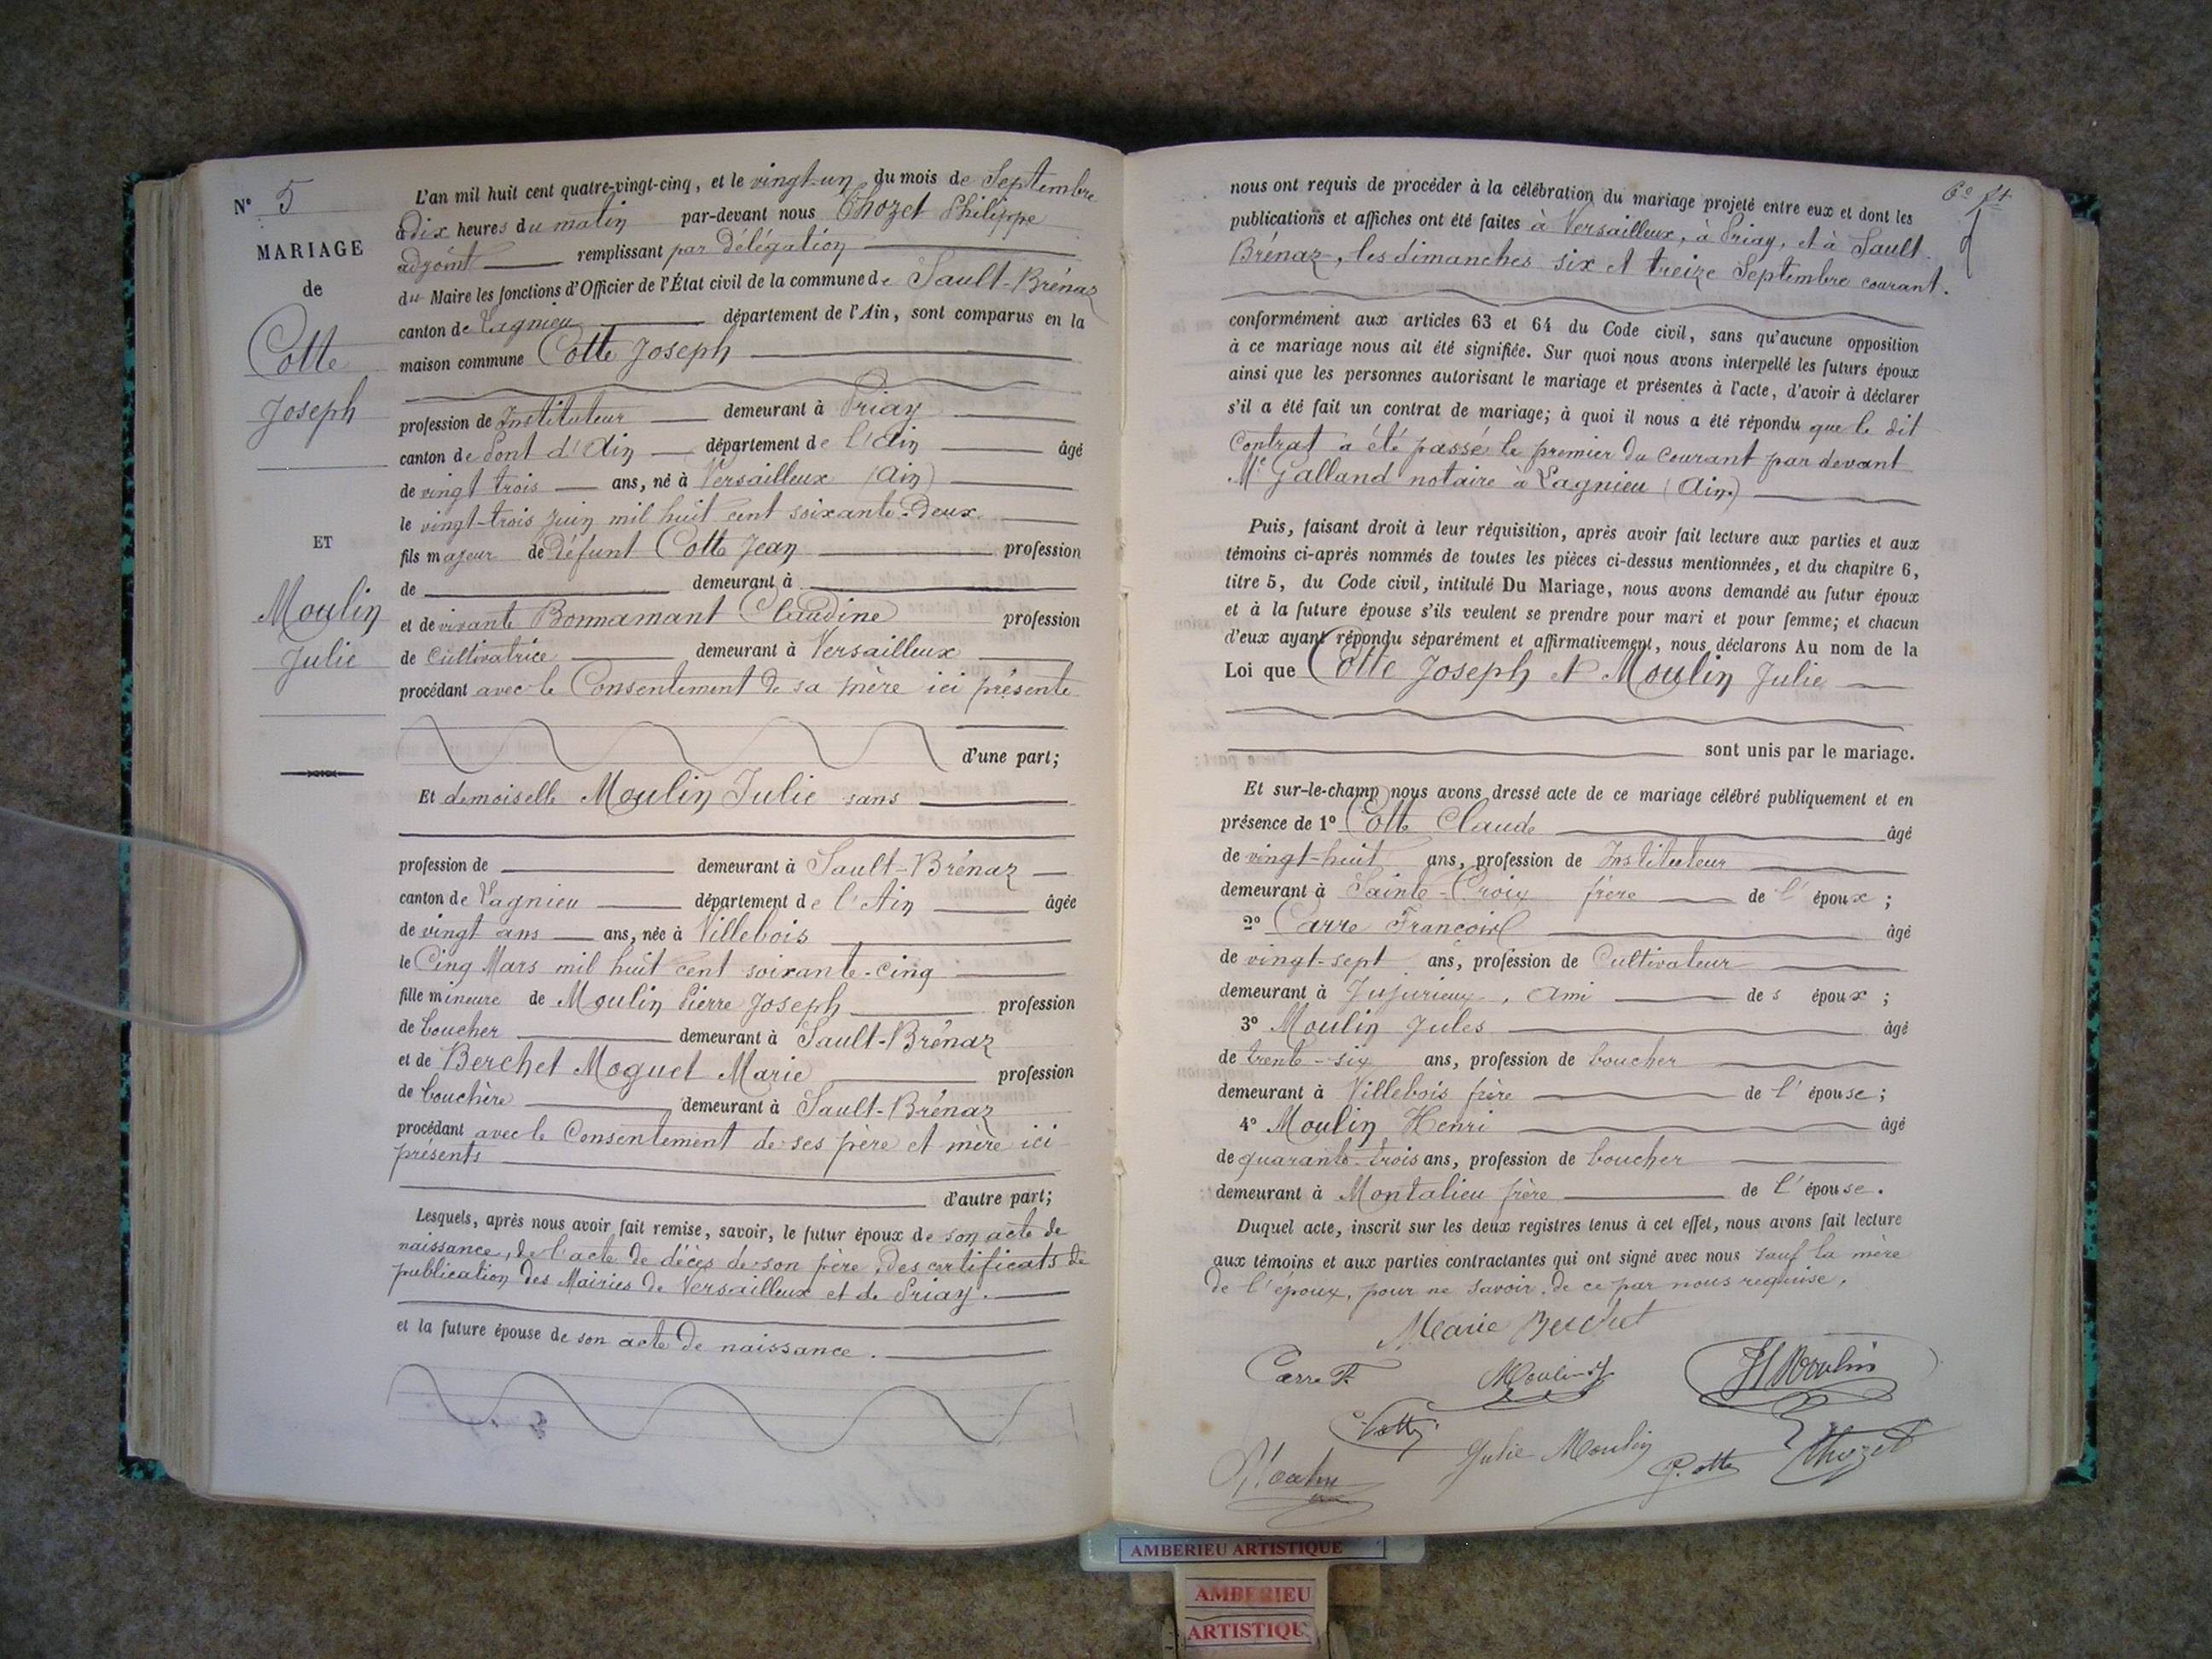 N° 5
MARIAGE
de
Cotte
Joseph
ET
Moulin
Julie
L'an mil huit cent quatre-vingt-cinq, et le vingt-un du mois de Septembre
à dix heures du matin par-devant nous Chozet Philippe
adjoint remplissant par délégation
du Maire les fonctions d'Officier de l'État civil de la commune de Sault-Brénaz
canton de Lagnieu département de l'Ain, sont comparus en la
maison commune Cotte Joseph
profession de Instituteur demeurant à Priay
canton de Pont d'Ain département de l'Ain âgé
de vingt trois ans, né à Versailleux (Ain)
le vingt-trois Juin mil huit cent soixante-deux
fils majeur de défunt Cotte Jean profession
de demeurant à
et de vivante Bonnamant Claudine profession
de Cultivatrice demeurant à Versailleux
procédant avec le Consentement de sa mère ici présente
d'une part;
Et demoiselle Moulin Julie sans
profession de demeurant à Sault-Brénaz
canton de Lagnieu département de l'Ain âgée
de vingt ans ans, née à Villebois
le Cinq Mars mil huit cent soixante-cinq
fille mineure de Moulin Pierre Joseph profession
de boucher demeurant à Sault-Brénaz
et de Berchet Moguet Marie profession
de bouchère demeurant à Sault-Brénaz
procédant avec le Consentement de ses père et mère ici
présents
d'autre part;
Lesquels, après nous avoir fait remise, savoir, le futur époux de son acte de
naissance, de l'acte de décès de son père, des certificats de
publication des Mairies de Versailleux et de Priay.
et la future épouse de son acte de naissance.
nous ont requis de procéder à la célébration du mariage projeté entre eux et dont les
publications et affiches ont été faites à Versailleux, à Priay, et à Sault-
Brénaz, les dimanches six et treize Septembre courant.
conformément aux articles 63 et 64 du Code civil, sans qu'aucune opposition
à ce mariage nous ait été signifiée. Sur quoi nous avons interpellé les futurs époux
ainsi que les personnes autorisant le mariage et présentes à l'acte, d'avoir à déclarer
s'il a été fait un contrat de mariage; à quoi il nous a été répondu que le dit
Contrat a été passé le premier du courant par devant
Me Galland notaire à Lagnieu (Ain.)
Puis, faisant droit à leur réquisition, après avoir fait lecture aux parties et aux
témoins ci-après nommés de toutes les pièces ci-dessus mentionnées, et du chapitre 6,
titre 5, du Code civil, intitulé Du Mariage, nous avons demandé au futur époux
et à la future épouse s'ils veulent se prendre pour mari et pour femme; et chacun
d'eux ayant répondu séparément et affirmativement, nous déclarons Au nom de la
Loi que Cotte Joseph et Moulin Julie
sont unis par le mariage.
Et sur-le-champ nous avons dressé acte de ce mariage célébré publiquement et en
présence de 1° Cotte Claude âgé
de vingt-huit ans, profession de Instituteur
demeurant à Sainte-Croix frère de l'époux;
2° Carre François âgé
de vingt-sept ans, profession de Cultivateur
demeurant à Jujurieux, Ami des époux;
3° Moulin Jules âgé
de trente-six ans, profession de boucher
demeurant à Villebois frère de l'épouse;
4° Moulin Henri âgé
de quarante-trois ans, profession de boucher
demeurant à Montalieu frère de l'épouse.
Duquel acte, inscrit sur les deux registres tenus à cet effet, nous avons fait lecture
aux témoins et aux parties contractantes qui ont signé avec nous sauf la mère
de l'époux, pour ne savoir, de ce par nous requise.
Marie Berchet
Carre F. Moulin J H Moulin
Cotte Julie Moulin C. Cotte Chozet
AMBERIEU ARTISTIQUE
AMBERIEU
ARTISTIQU